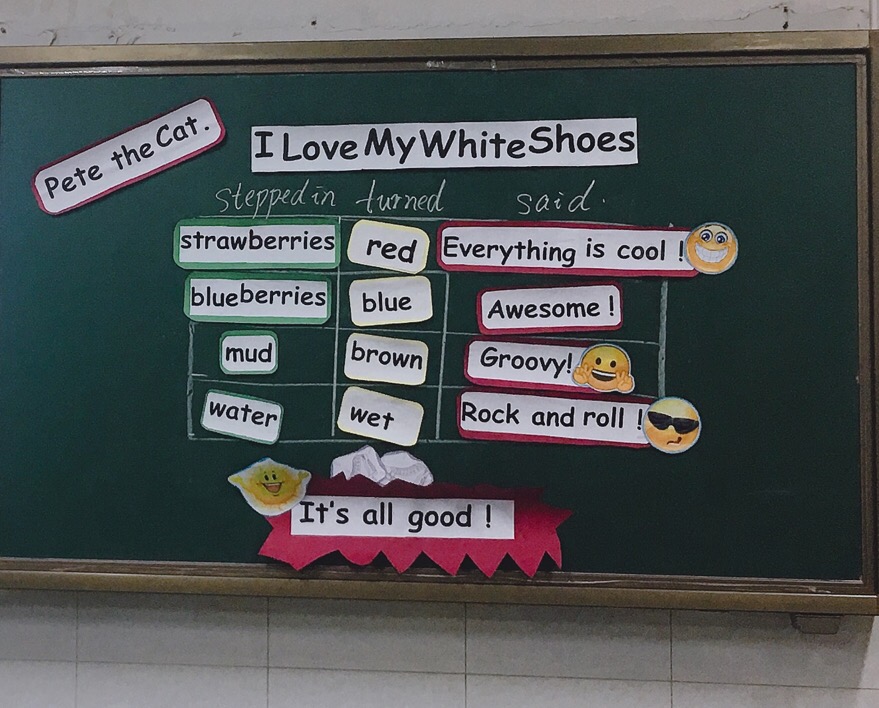 Pete the Cat.
I Love My White Shoes
stepped in turned said.
strawberries red Everything is cool !
blueberries blue Awesome !
mud brown Groovy!
water wet Rock and roll !
It's all good !